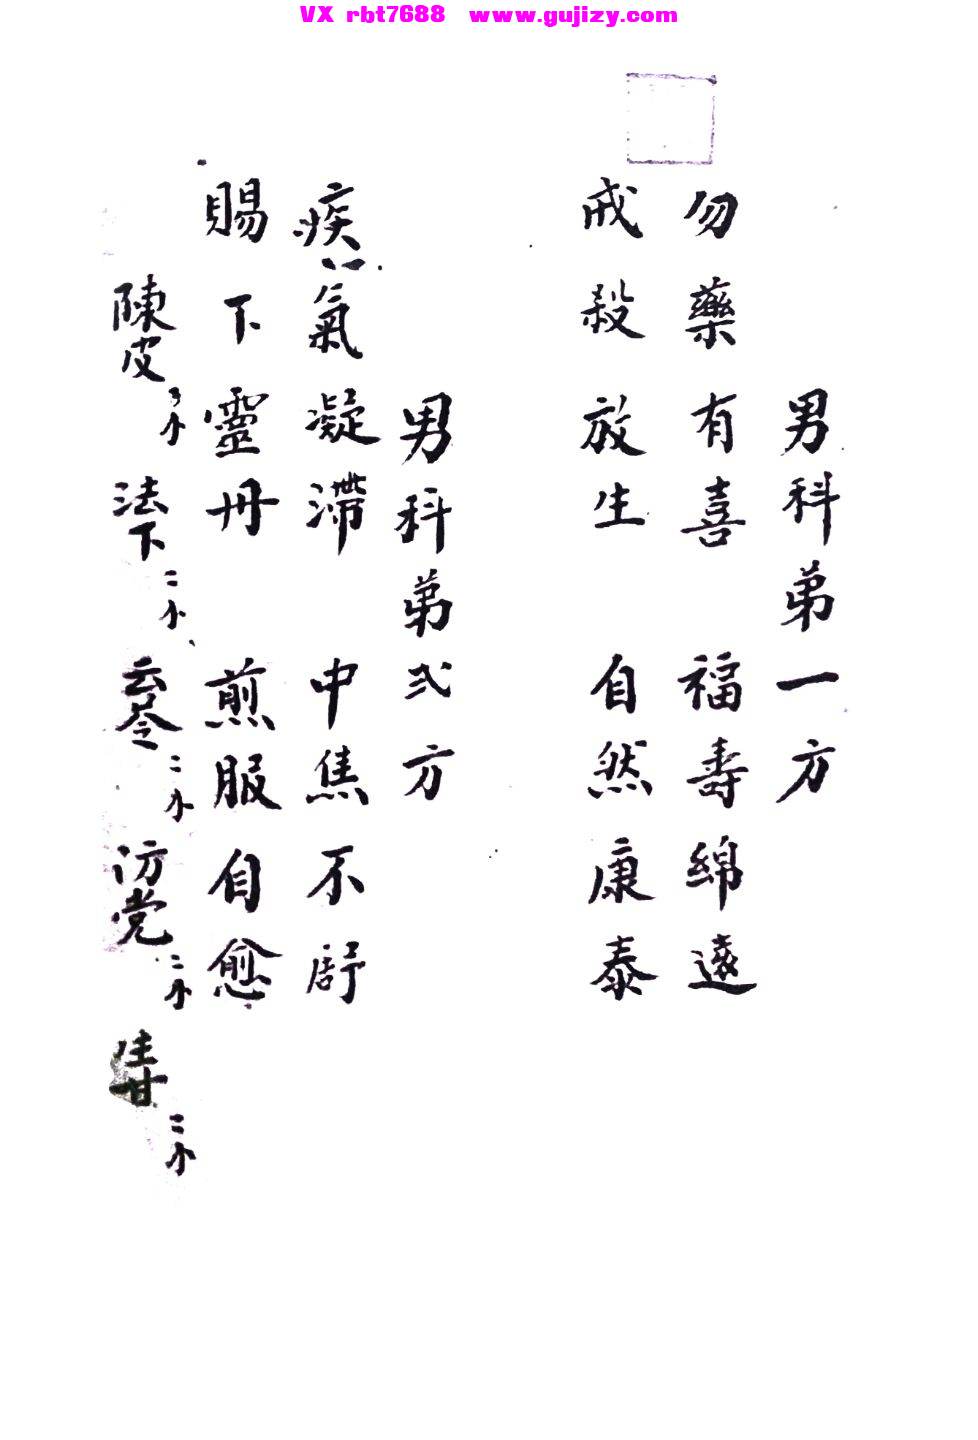 VX rbt7688 www.gujizy.com
男科弟一方
勿藥有喜 福壽綿遠
戒殺放生 自然康泰
男科弟弍方
痰氣凝滯 中焦不舒
賜下靈丹 煎服自愈
陳皮 法下二小 云苓二小 汸党二小 生甘二小